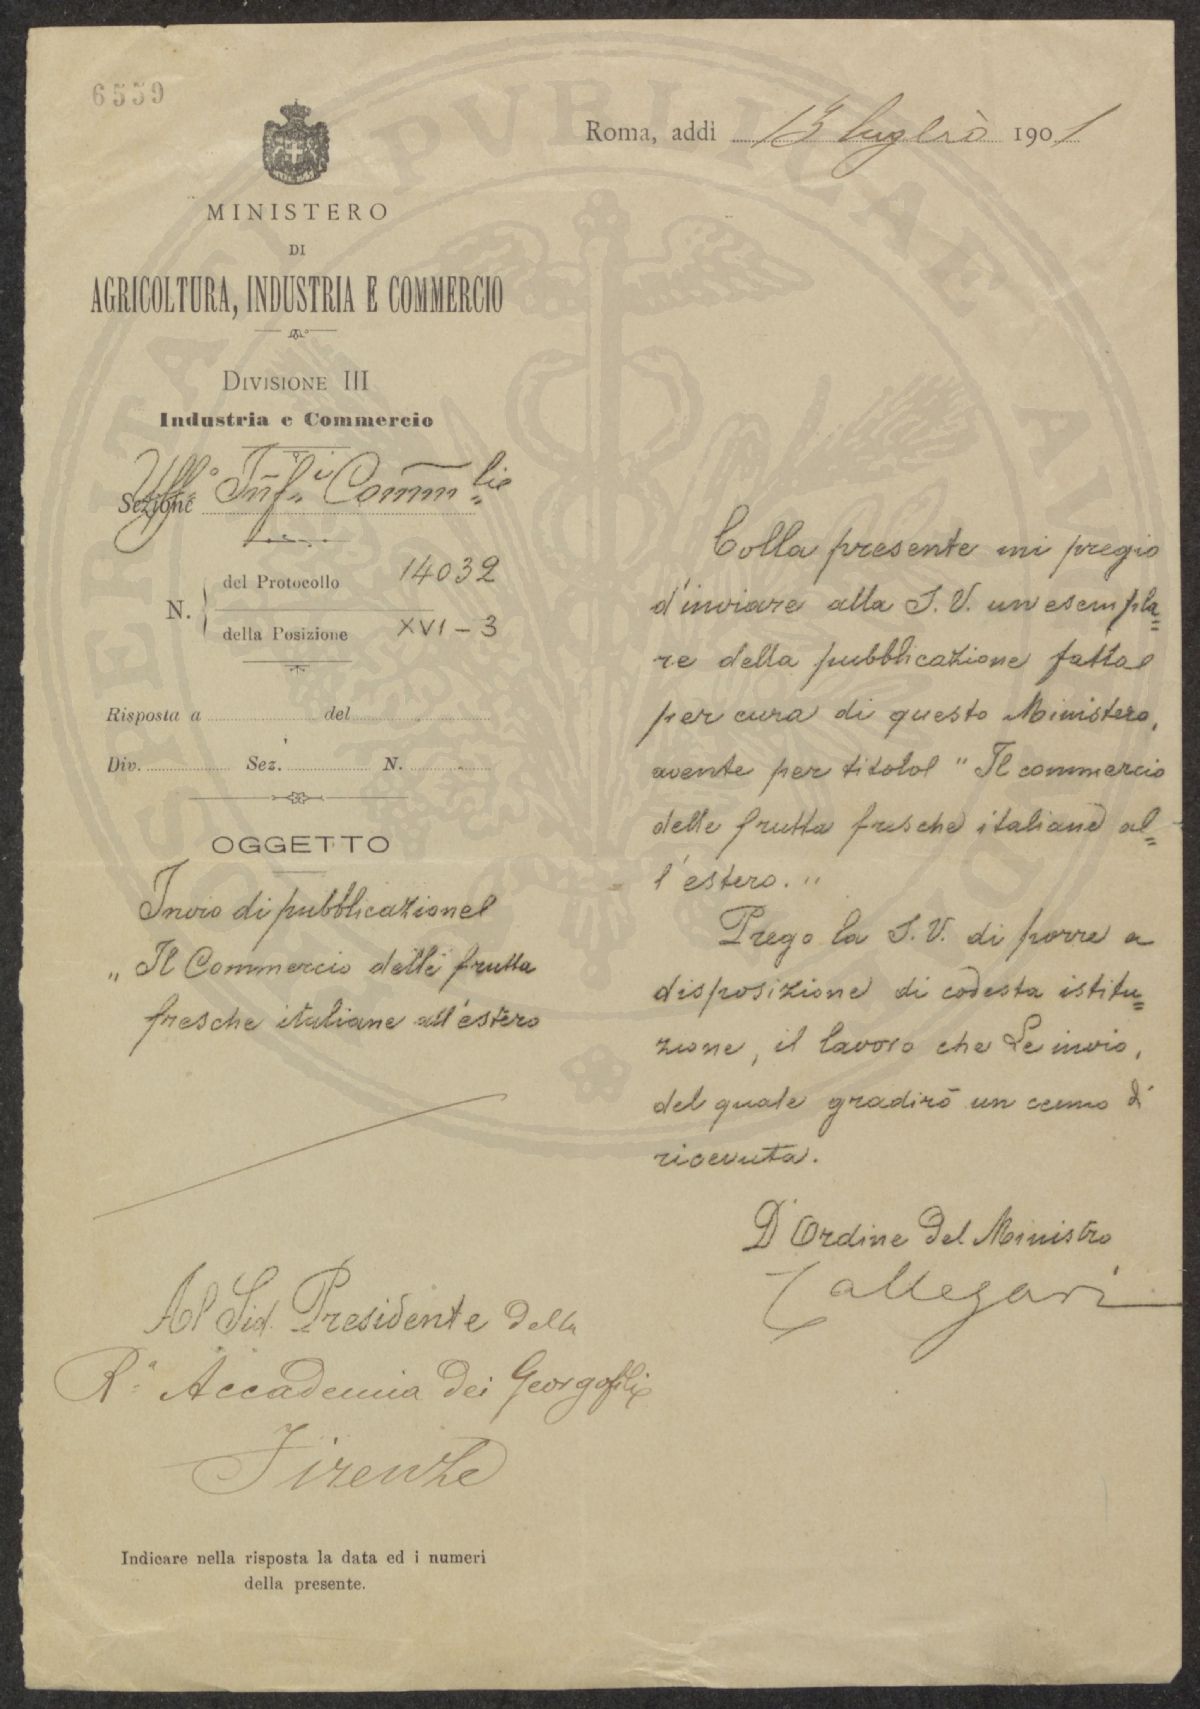 6559
Roma, addì 13 luglio 1901
MINISTERO
DI
AGRICOLTURA, INDUSTRIA E COMMERCIO
DIVISIONE III
Industria e Commercio
Sezione Uff.º Inf.i Comm.lie
N. del Protocollo 14032
della Posizione XVI-3
Risposta a del
Div. Sez. N.
OGGETTO
Invio di pubblicazione
"Il Commercio delle frutta
fresche italiane all'estero
Colla presente mi pregio
d'inviare alla S. V. un esempla=
re della pubblicazione fatta
per cura di questo Ministero,
avente per titolo "Il commercio
delle frutta fresche italiane al=
l'estero."
Prego la S. V. di porre a
disposizione di codesta istitu=
zione, il lavoro che Le invio,
del quale gradirò un cenno di
ricevuta.
D'Ordine del Ministro
Callegari
Al Sig. Presidente della
R.ª Accademia dei Georgofili
Firenze
Indicare nella risposta la data ed i numeri
della presente.
PROSPERITATI PUBLICAE AUGENDAE